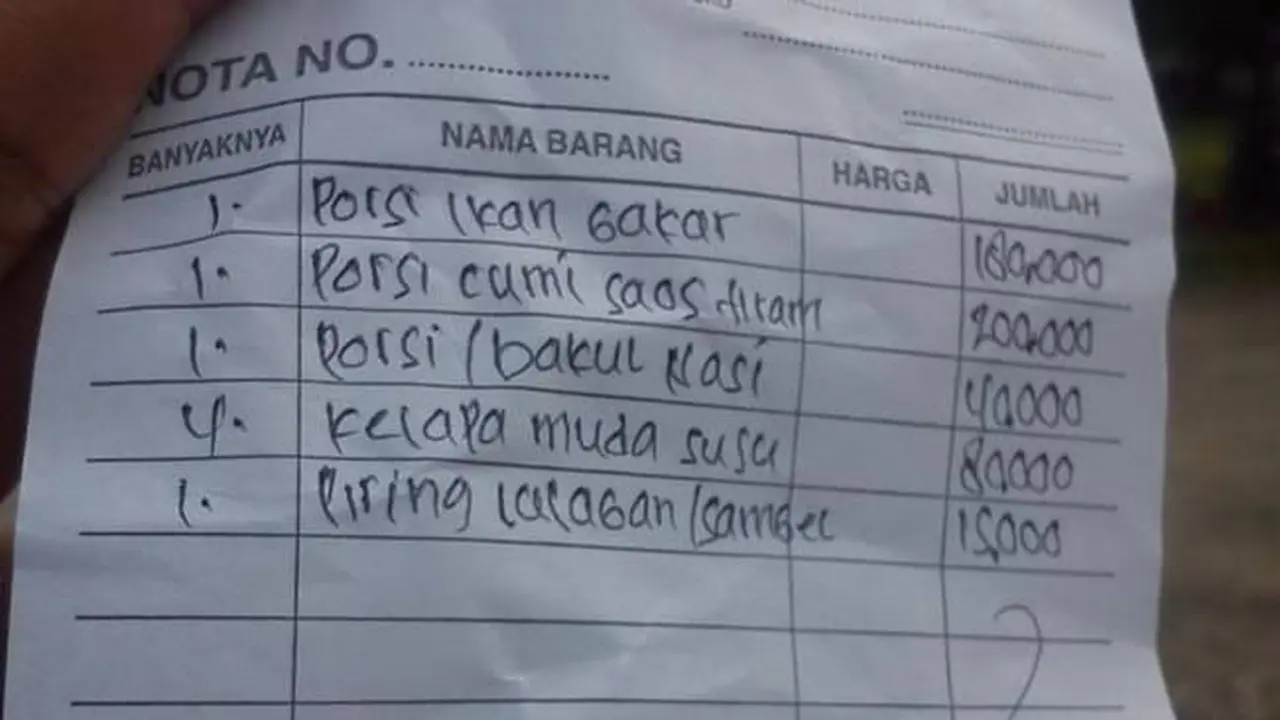 NOTA NO. ....................
BANYAKNYA NAMA BARANG HARGA JUMLAH
1. Porsi Ikan Bakar 180,000
1. Porsi cumi saos tiram 200,000
1. Porsi / bakul Nasi 40,000
4. Kelapa muda susu 80,000
1. Piring lalaban / sambel 15,000